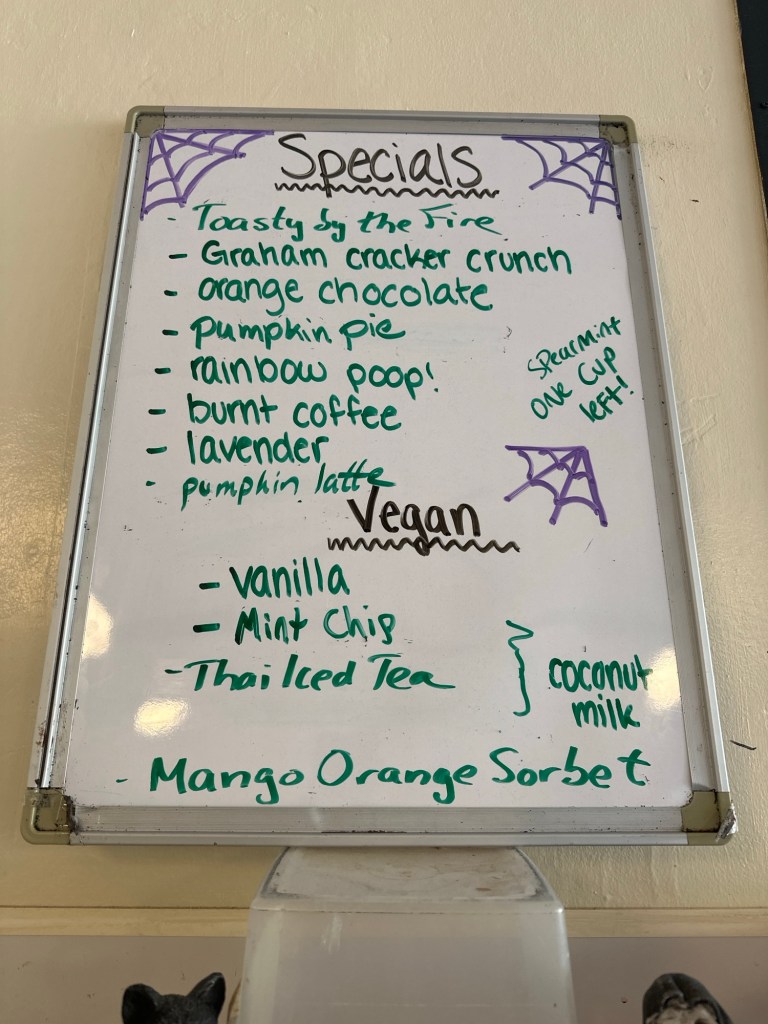 Specials
- Toasty by the Fire
- Graham cracker crunch
- orange chocolate
- pumpkin pie
- rainbow poop!
- burnt coffee
- lavender
- pumpkin latte
spearmint
one cup
left!
Vegan
- vanilla
- Mint Chip
- Thai Iced Tea
coconut
milk
- Mango Orange Sorbet